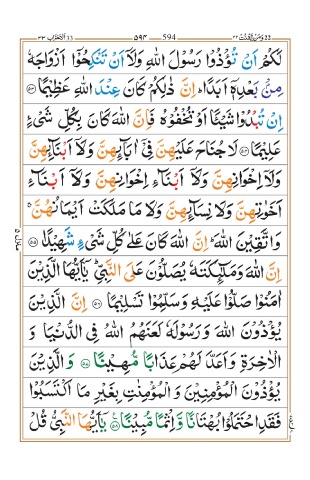 ٢٢ ومن يقنت ٢٢ ٥٩٤ 594 الاحزاب ٣٣
لَكُمْ اَنْ تُؤْذُوْا رَسُوْلَ اللّٰهِ وَلَاۤ اَنْ تَنْكِحُوْۤا اَزْوَاجَهٗ
مِنْۢ بَعْدِهٖۤ اَبَدًا ؕ اِنَّ ذٰلِكُمْ كَانَ عِنْدَ اللّٰهِ عَظِيْمًا ۟
اِنْ تُبْدُوْا شَيْـًٔا اَوْ تُخْفُوْهُ فَاِنَّ اللّٰهَ كَانَ بِكُلِّ شَيْءٍ
عَلِيْمًا ۟۵۴ لَا جُنَاحَ عَلَيْهِنَّ فِيْۤ اٰبَآىِٕهِنَّ وَلَاۤ اَبْنَآىِٕهِنَّ
وَلَاۤ اِخْوَانِهِنَّ وَلَاۤ اَبْنَآءِ اِخْوَانِهِنَّ وَلَاۤ اَبْنَآءِ
اَخَوٰتِهِنَّ وَلَا نِسَآىِٕهِنَّ وَلَا مَا مَلَكَتْ اَيْمَانُهُنَّ ۚ
وَاتَّقِيْنَ اللّٰهَ ؕ اِنَّ اللّٰهَ كَانَ عَلٰى كُلِّ شَيْءٍ شَهِيْدًا ۟۵۵
اِنَّ اللّٰهَ وَمَلٰٓىِٕكَتَهٗ يُصَلُّوْنَ عَلَى النَّبِيِّ ؕ يٰۤاَيُّهَا الَّذِيْنَ
اٰمَنُوْا صَلُّوْا عَلَيْهِ وَسَلِّمُوْا تَسْلِيْمًا ۟۵۶ اِنَّ الَّذِيْنَ
يُؤْذُوْنَ اللّٰهَ وَرَسُوْلَهٗ لَعَنَهُمُ اللّٰهُ فِي الدُّنْيَا وَ
الْاٰخِرَةِ وَاَعَدَّ لَهُمْ عَذَابًا مُّهِيْنًا ۟۵۷ وَ الَّذِيْنَ
يُؤْذُوْنَ الْمُؤْمِنِيْنَ وَ الْمُؤْمِنٰتِ بِغَيْرِ مَا اكْتَسَبُوْا
فَقَدِ احْتَمَلُوْا بُهْتَانًا وَّ اِثْمًا مُّبِيْنًا ۟۵۸ يٰۤاَيُّهَا النَّبِيُّ قُلْ